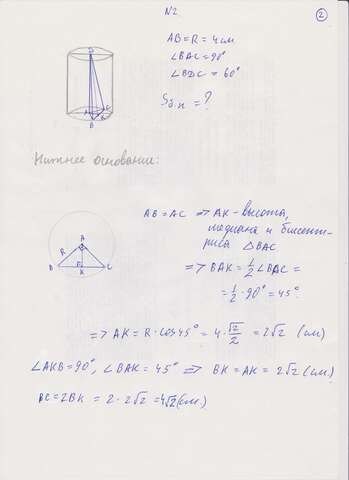 N2
2
AB = R = 4 см
∠BAC = 90°
∠BDC = 60°
Sб.п = ?
D
A
C
K
B
Нижнее основание:
A
R
B
K
C
AB = AC ⇒ AK - высота,
медиана и биссект-
риса △BAC
⇒ BAK = 1/2 ∠BAC =
= 1/2 · 90° = 45°
⇒ AK = R · cos 45° = 4 · √2/2 = 2√2 (см)
∠AKB = 90°, ∠BAK = 45° ⇒ BK = AK = 2√2 (см.)
BC = 2BK = 2 · 2√2 = 4√2 (см.)